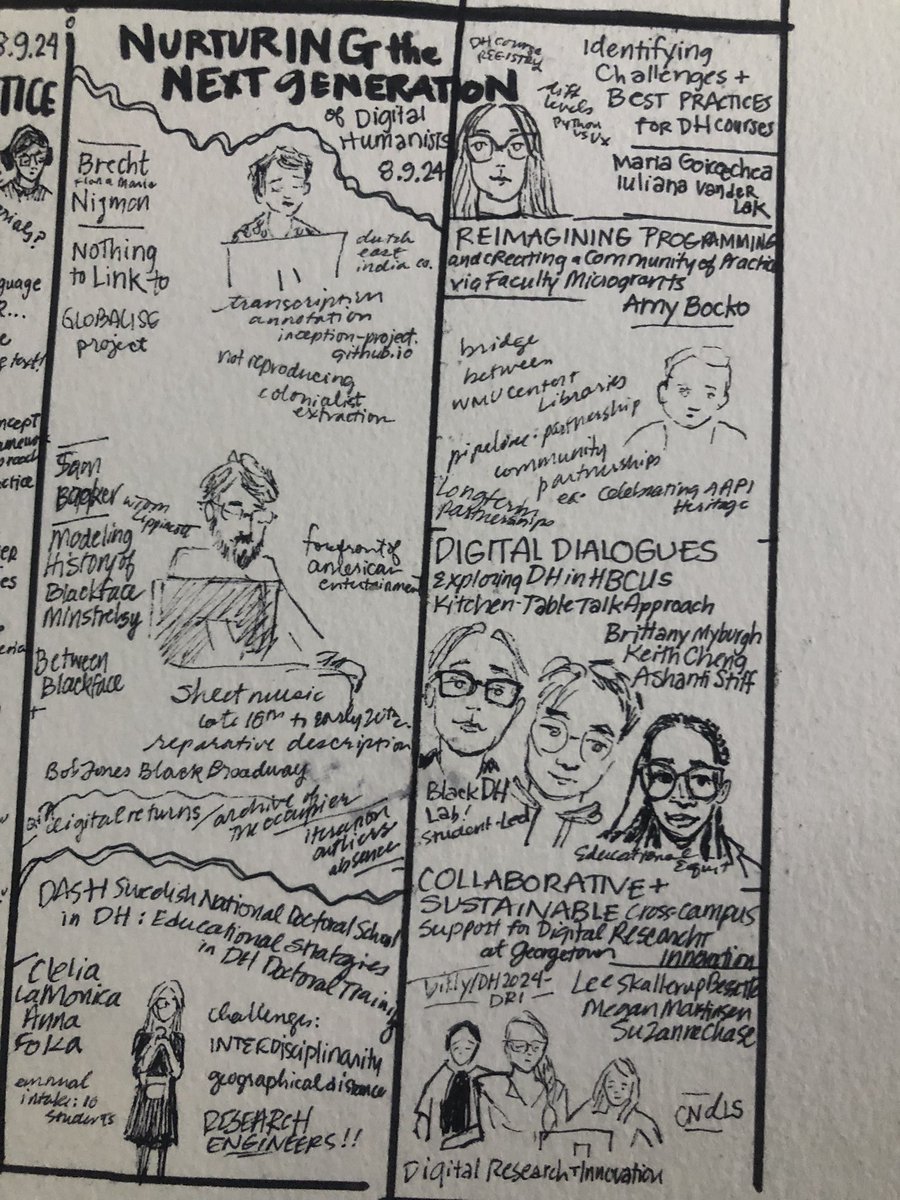 8.9.24
TICE
NURTURING the
NEXT GENERATION
of Digital
Humanists
8.9.24
Brecht
Nijman
Nothing
to Link to
GLOBALISE
project
dutch
east
india co.
transcription
annotation
inception-project.
github.io
not reproducing
colonialist
extraction
Sam
Backer
w/Tom
Lippincott
Modeling
History of
Blackface
Minstrelsy
Between
Blackface
+
forefront of
american
entertainment
Sheet music
late 18th to early 20th c.
reparative description
Bob Jones Black Broadway
digital returns / archive of
the occupier
iteration
outliers
absence
DASH Swedish National Doctoral School
in DH: Educational Strategies
in DH Doctoral Training
Clelia
LaMonica
Anna
Foka
annual
intake: 10
students
challenges:
INTERdisciplinarity
geographical distance
RESEARCH
ENGINEERS!!
DH course
REGISTRY
levels
python
vs UX
Identifying
Challenges +
BEST PRACTICES
for DH courses
Maria Goicoechea
Iuliana van der
Lek
REIMAGINING PROGRAMMING
and creating a Community of Practice
via Faculty Microgrants
Amy Bocko
bridge
between
WMU Center +
Libraries
pipeline: partnership
community
partnerships
Longterm
Partnerships
ex: celebrating AAPI
Heritage
DIGITAL DIALOGUES
Exploring DH in HBCUs
Kitchen-Table Talk Approach
Brittany Myburgh
Keith Cheng
Ashanti Stiff
Black DH
Lab!
Student-Led
Educational
Equit
COLLABORATIVE +
SUSTAINABLE Cross-campus
Support for Digital Research +
at Georgetown Innovation
bit.ly/DH2024-
DRI
Lee Skallerup Bessette
Megan Martinsen
Suzanne Chase
CNDLS
Digital Research + Innovation